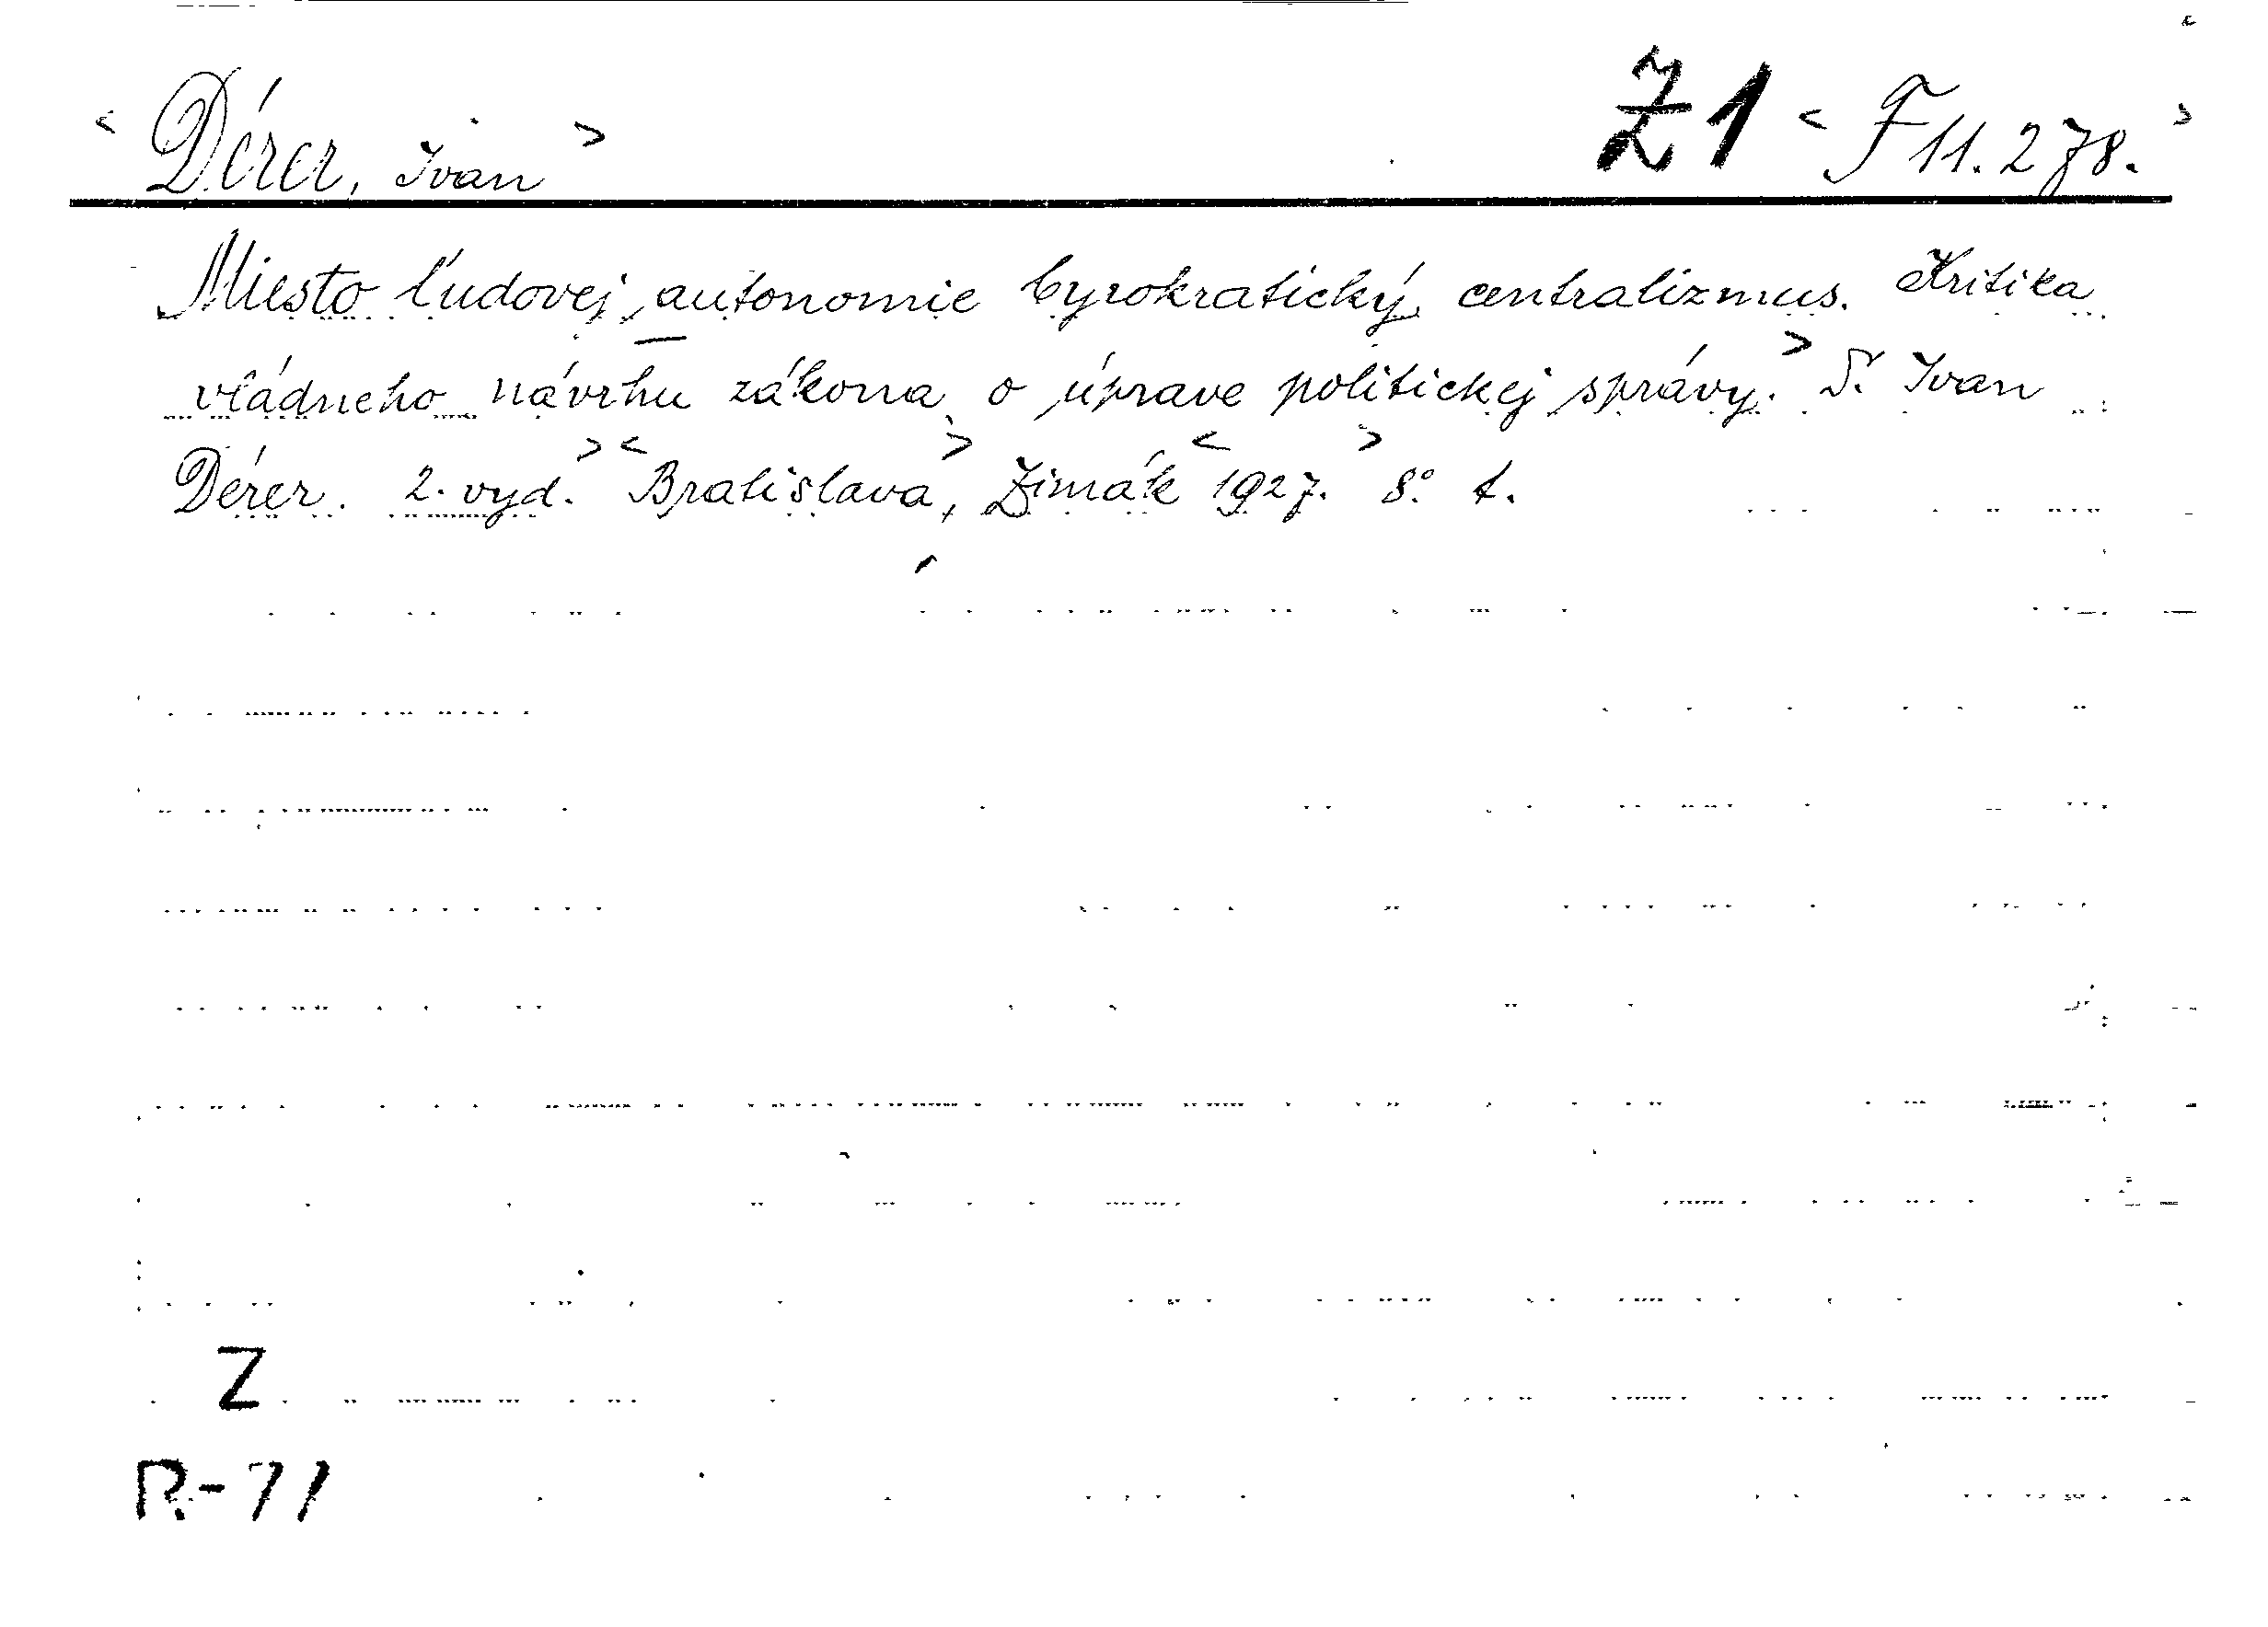 < Dérer, Ivan > Ž1 < F 11.278. >
Miesto ľudovej autonomie byrokratický centralizmus. Kritika
vládneho návrhu zákona o úprave politickej správy. > D. Ivan
Dérer. 2. vyd. > < Bratislava, > Zimák < 1927. > 8°. t.
Z
R-71